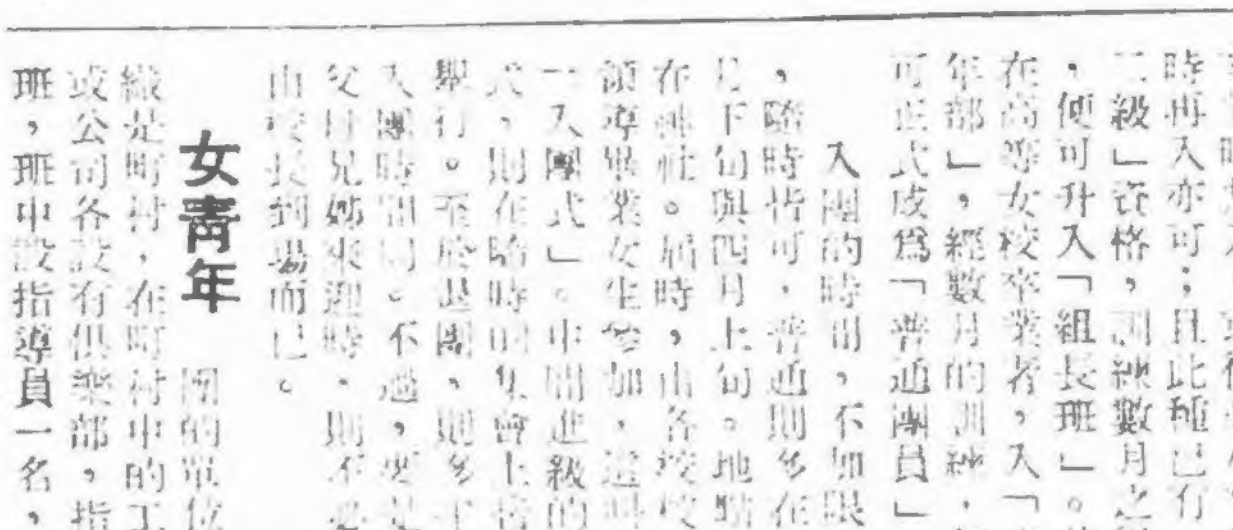 時再入亦可；且此種已有
二級」資格，訓練數月之
，便可升入「組長班」。
在高等女校卒業者，入「
年部」，經數月的訓練，
可正式成爲「普通團員」
入團的時間，不加限
，隨時皆可，普通則多在
月下旬與四月上旬。地點
在神社。屆時，由各校校
領導畢業女生參加，這叫
一入團式」。中間進級的
式，則在臨時的集會上
舉行。至於退團，則多
入團時間同。不過，
父母兄姊來迎時，則不
由校長到場而已。
女青年　團的單位
織是町村，在町村中的工
或公司各設有俱樂部，指
班，班中設指導員一名，